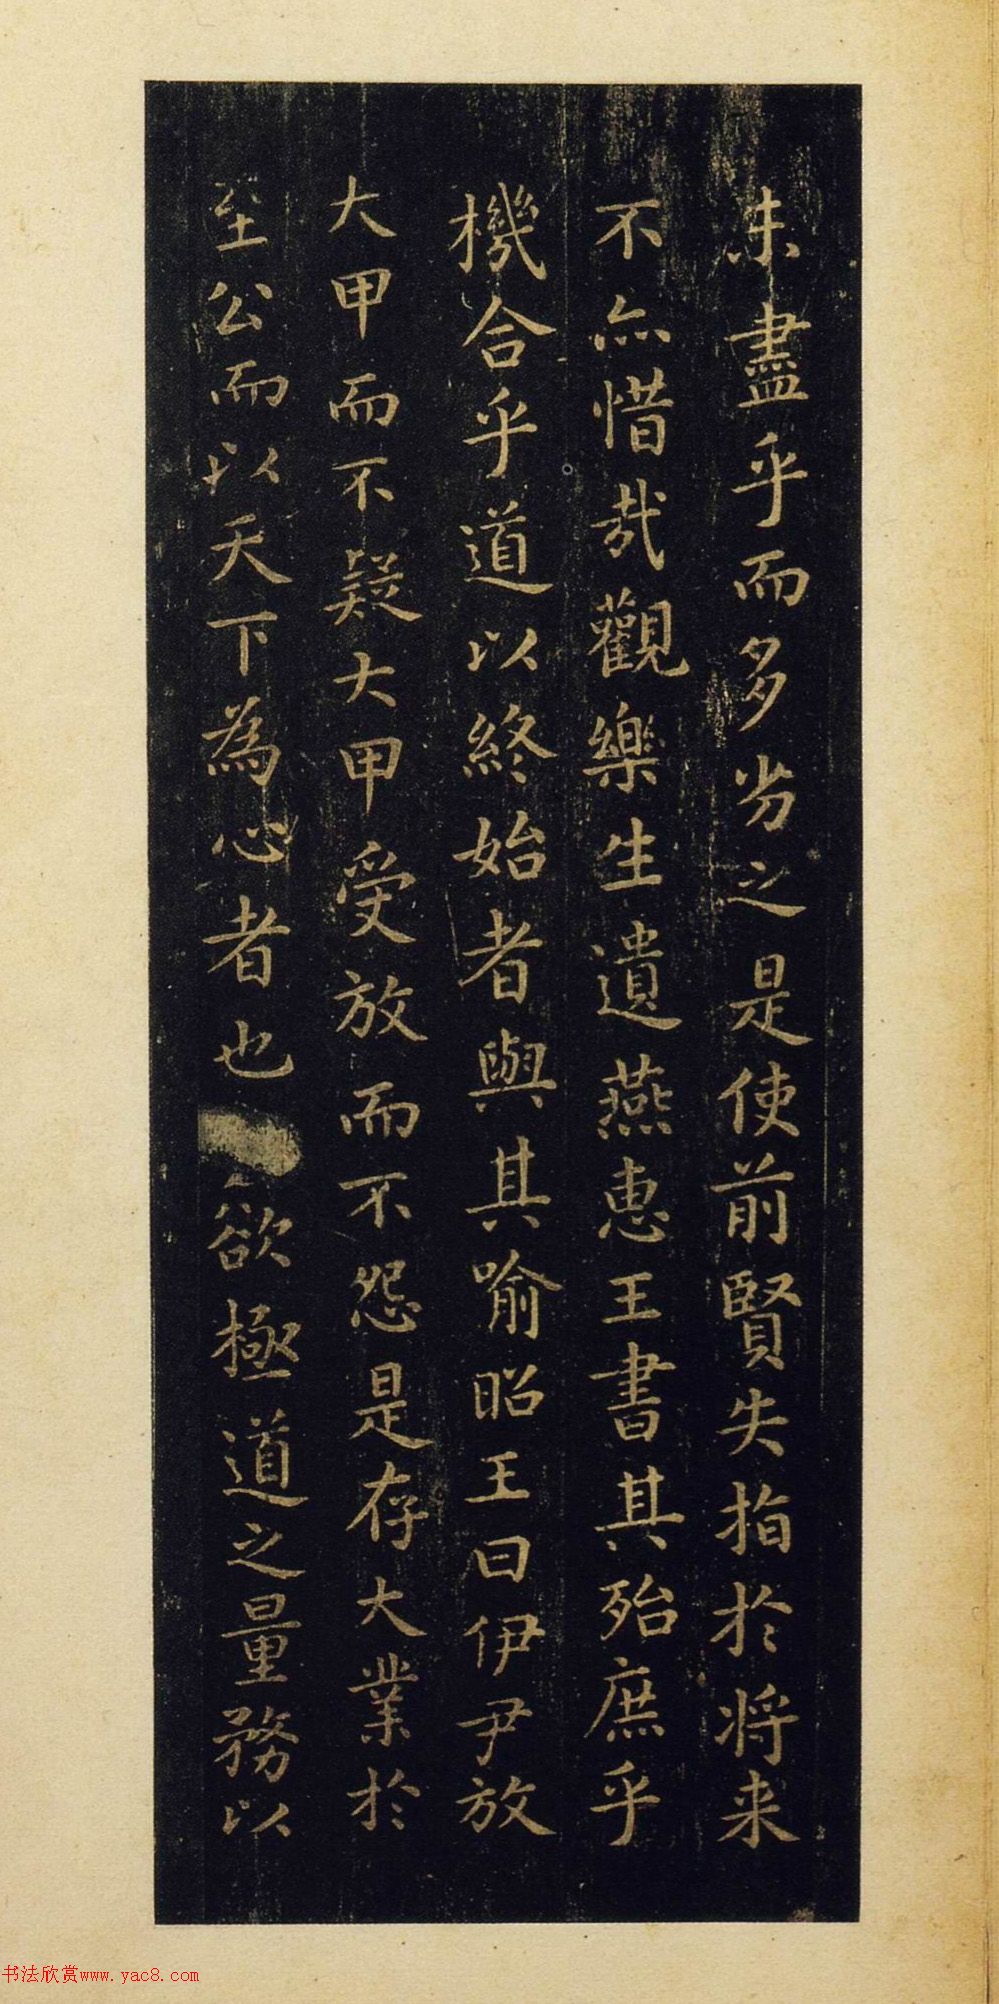 未盡乎而多劣之是使前賢失指於将来
不亦惜哉觀樂生遺燕惠王書其殆庶乎
機合乎道以終始者與其喻昭王曰伊尹放
大甲而不疑大甲受放而不怨是存大業於
至公而以天下為心者也欲極道之量務以
书法欣赏www.yac8.com